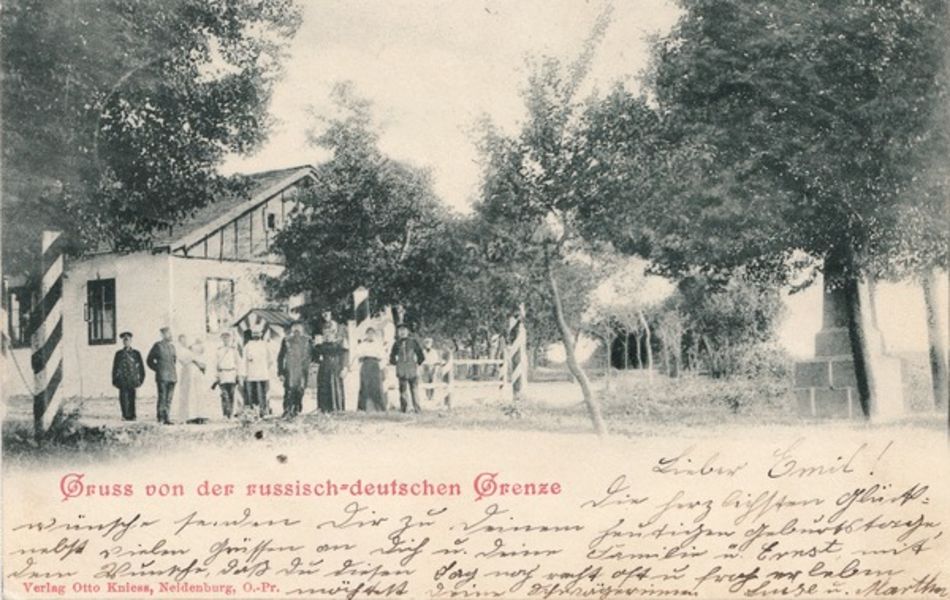 Gruss von der russisch-deutschen Grenze
Lieber Emil!
Die herzlichsten Glück-
wünsche senden Dir zu Deinem heutigen Geburtstage,
nebst vielen Grüssen an Dich u. Deine Familie u. Ernst, mit
dem Wunsche, daß Du diesen Tag noch recht oft u. froh erleben
möchtest Deine Schwägerinnen Luise u. Martha
Verlag Otto Kniess, Neidenburg, O.-Pr.